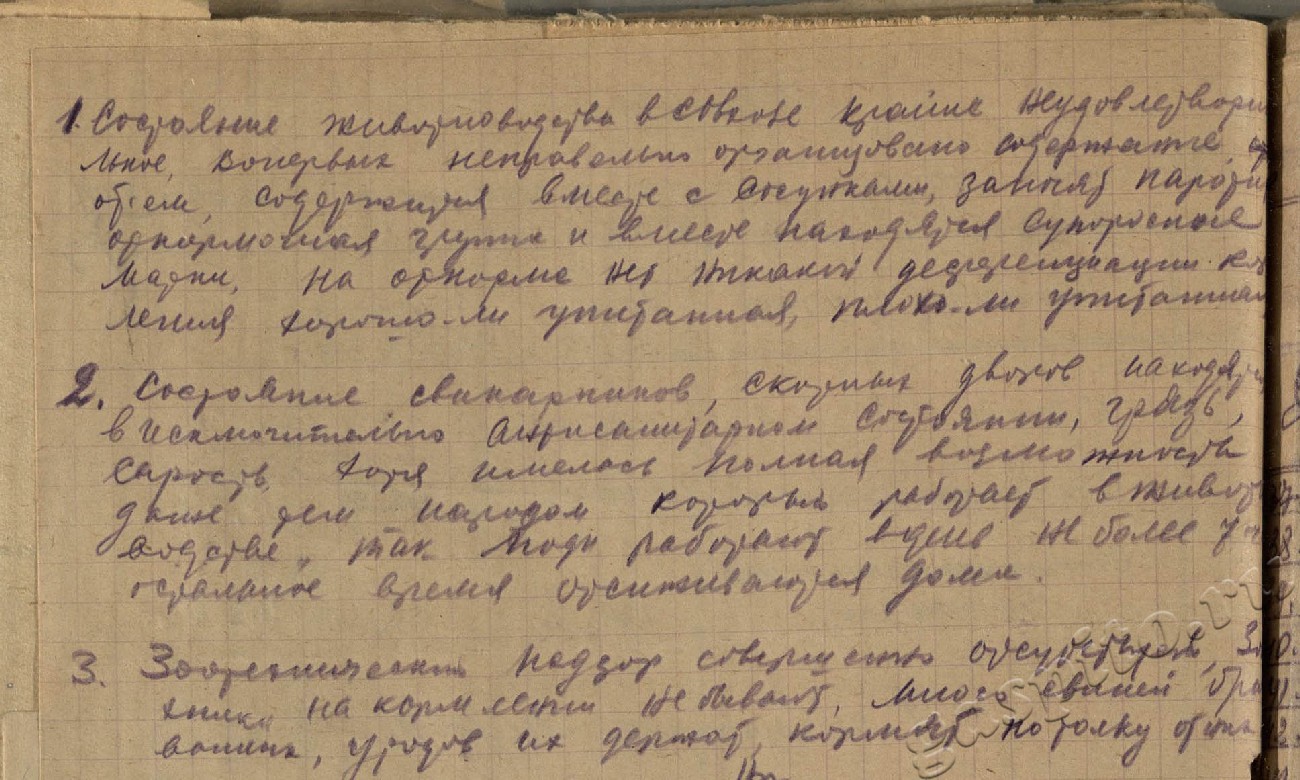 1. Состояние животноводства в совхозе крайне неудовлетвори
льное, вопервых неправельно организовано содержание,
от'ем, содержится вместе с сосунками, занят
откормочная группа и вместе находятся супоросные
матки, на откорме нет никакой деференциации
ления хорошо-ли упитанная, плохо-ли упитанная
2. Состояние свинарников, скотных дворов находят
в исключительно антисанитарном состоянии, грязь,
сырость, хотя имелась полная возможность
даже тем народом который работает в живот
водстве, так люди работают в день не более 7
остальное время отсиживаются дома.
3. Зоотехнический надзор совершенно отсутствует,
на кормлении не бывает, много свиней
уродов их держат, кормят потолку от них